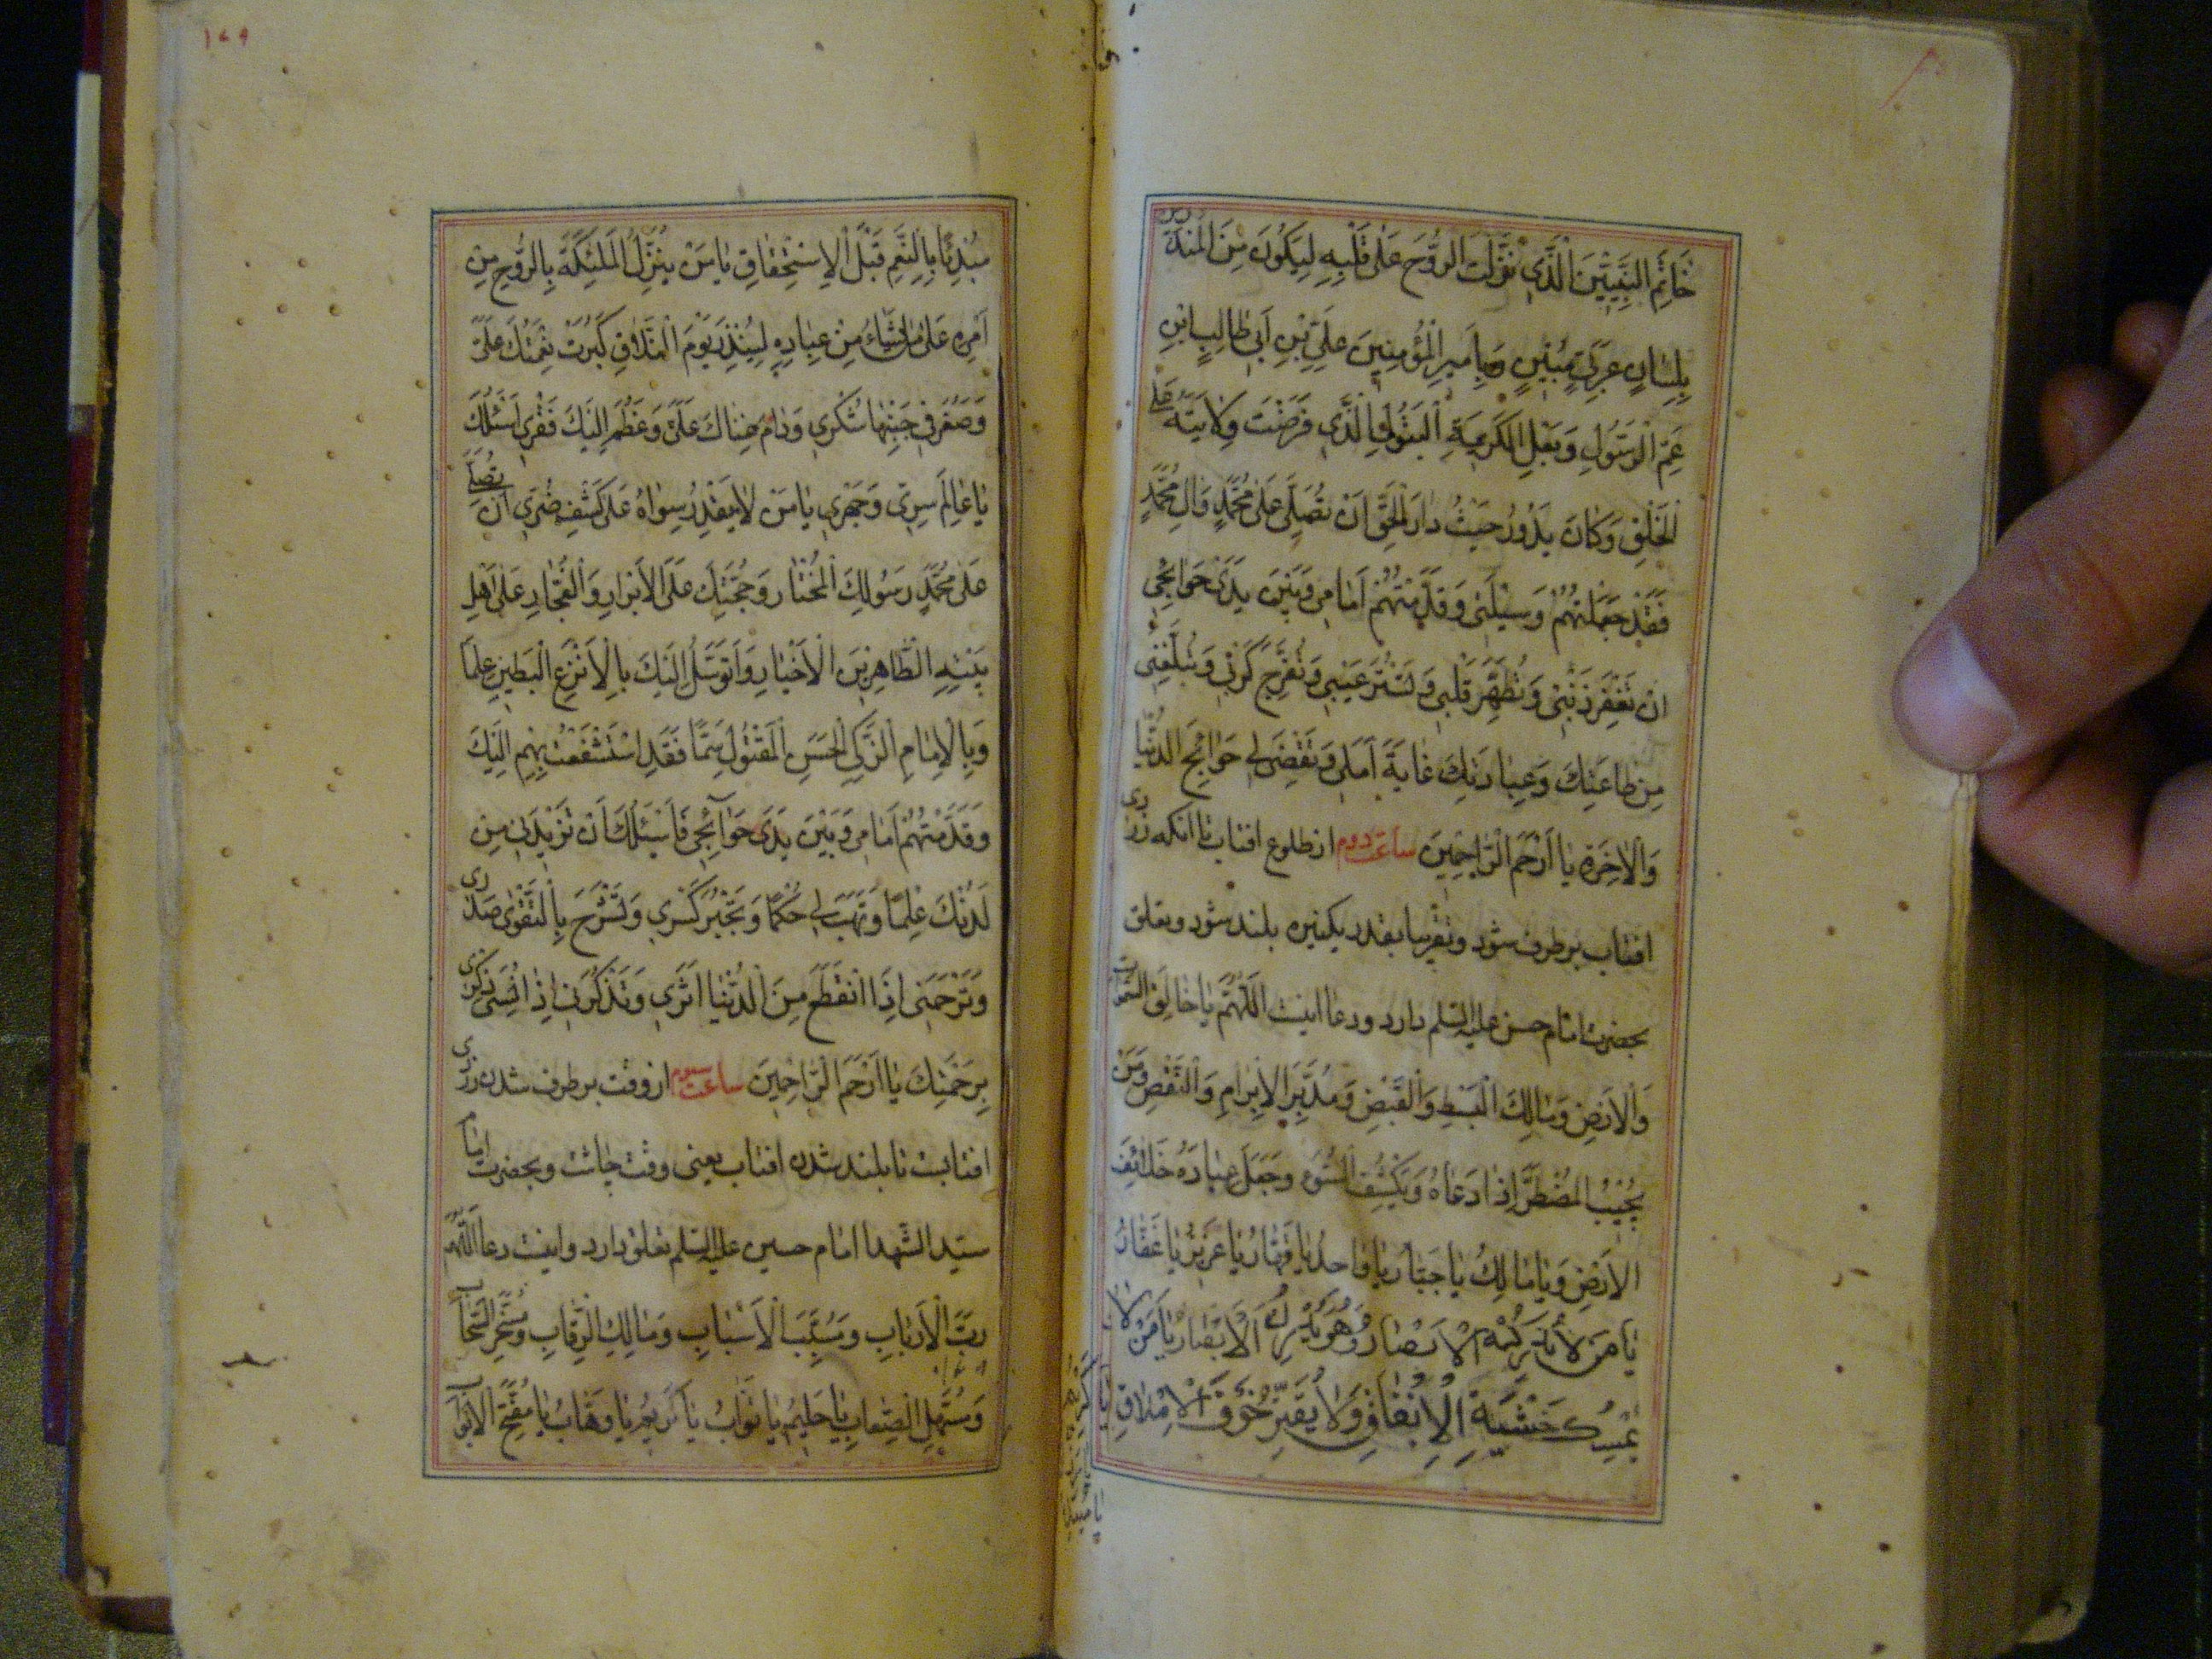 خَاتَمِ النَّبِيّينَ الَّذِي نَزَّلْتَ الرُّوحَ عَلىٰ قَلْبِهِ لِيَكُونَ مِنَ الْمُنذِرين
بِلِسَانٍ عَرَبِيٍّ مُبِينٍ وَبِأَمِيرِ الْمُؤْمِنِينَ عَلِيِّ بْنِ أَبِي طَالِبٍ ابْنِ
عَمِّ الرَّسُولِ وَبَعْلِ الْكَرِيمَةِ الْبَتُولِ الَّذِي فَرَضْتَ وِلَايَتَهُ عَلَى
الْخَلْقِ وَكَانَ يَدُورُ حَيْثُ دَارَ الْحَقُّ اَنْ تُصَلِّيَ عَلىٰ مُحَمَّدٍ وَالِ مُحَمَّدٍ
فَقَدْ جَعَلْتُهُمْ وَسِيْلَتِي وَقَدَّمْتُهُمْ اَمَامِي وَبَيْنَ يَدَيْ حَوَائِجِي
اَنْ تَغْفِرَ ذَنْبِي وَتُطَهِّرَ قَلْبِي وَتَسْتُرَ عَيْبِي وَتُفَرِّجَ كَرْبِي وَتُبَلِّغَنِي
مِنْ طَاعَتِكَ وَعِبَادَتِكَ غَايَةَ اَمَلِي وَتَقْضِيَ لِي حَوَائِجَ الدُّنْيَا
وَالْاٰخِرَةِ يَا اَرْحَمَ الرَّاحِمِينَ ساعت دوم از طلوع افتاب تا انكه زردى
افتاب برطرف شود وتقريبا بقدر يكنيزه بلند شود وتعلق
بحضرت امام حسن عليه السلم دارد ودعا اينست اللّٰهُمَّ يَا خَالِقَ السَّمٰوَاتِ
وَالْاَرْضِ وَمَالِكَ الْبَسْطِ وَالْقَبْضِ وَمُدَبِّرَ الْاِبْرَامِ وَالنَّقْضِ وَمَنْ
يُجِيْبُ الْمُضْطَرَّ اِذَا دَعَاهُ وَيَكْشِفُ السُّوۤءَ وَجَعَلَ عِبَادَهُ خَلَائِفَ
الْاَرْضِ وَيَا مَالِكُ يَا جَبَّارُ يَا وَاحِدُ يَا قَهَّارُ يَا عَزِيزُ يَا غَفَّارُ
يَا مَنْ لَا تُدْرِكُهُ الْاَبْصَارُ وَهُوَ يُدْرِكُ الْاَبْصَارَ يَا مَنْ لَا
يُمْسِكُ خَشْيَةَ الْاِنْفَاقِ وَلَا يُقَتِّرُ خَوْفَ الْاِمْلَاقِ يَا
۱۷۹
مُبْدِئًا بِالنِّعَمِ قَبْلَ الْاِسْتِحْقَاقِ يَا مَنْ يُنَزِّلُ الْمَلٰئِكَةَ بِالرُّوحِ مِنْ
اَمْرِهِ عَلىٰ مَنْ يَشَاءُ مِنْ عِبَادِهِ لِيُنْذِرَ يَوْمَ التَّلَاقِ كَبُرَتْ نِعْمَتُكَ عَلَيَّ
وَصَغُرَ فِي جَنْبِهَا شُكْرِي وَدَامَ غِنَاكَ عَنِّي وَعَظُمَ اِلَيْكَ فَقْرِي اَسْئَلُكَ
يَا عَالِمَ سِرِّي وَجَهْرِي يَا مَنْ لَا يَقْدِرُ سِوَاهُ عَلىٰ كَشْفِ ضُرِّي اَنْ تُصَلِّيَ
عَلىٰ مُحَمَّدٍ رَسُولِكَ الْمُخْتَارِ وَحُجَّتِكَ عَلَى الْاَبْرَارِ وَالْفُجَّارِ وَعَلىٰ اَهْلِ
بَيْتِهِ الطَّاهِرِينَ الْاَخْيَارِ وَاَتَوَسَّلُ اِلَيْكَ بِالْاَنْزَعِ الْبَطِينِ عِلْمًا
وَبِالْاِمَامِ الزَّكِيِّ الْحَسَنِ الْمَقْتُولِ سَمًّا فَقَدِ اسْتَشْفَعْتُ بِهِمْ اِلَيْكَ
وَقَدَّمْتُهُمْ اَمَامِي وَبَيْنَ يَدَيْ حَوَآئِجِي فَاَسْئَلُكَ اَنْ تَزِيْدَنِي مِنْ
لَدُنْكَ عِلْمًا وَتَهَبَ لِي حُكْمًا وَتَجْبُرَ كَسْرِي وَتَشْرَحَ بِالتَّقْوٰى صَدْرِى
وَتَرْحَمَنِي اِذَا انْقَطَعَ مِنَ الدُّنْيَا اَثَرِي وَتَذْكُرَنِي اِذَا نُسِيَ ذِكْرِى
بِرَحْمَتِكَ يَا اَرْحَمَ الرَّاحِمِينَ ساعت سيوم از وقت برطرف شدن زردى
افتابست تا بلند شدن افتاب يعنى وقت چاشت وبحضرت امام
سيد الشهدا امام حسين عليه السلم تعلق دارد واينست دعا اَللّٰهُمَّ
رَبَّ الْاَرْبَابِ وَمُسَبِّبَ الْاَسْبَابِ وَمَالِكَ الرِّقَابِ وَمُسَخِّرَ السَّحَابِ
وَمُسَهِّلَ الصِّعَابِ يَا حَلِيمُ يَا تَوَّابُ يَا كَرِيمُ يَا وَهَّابُ يَا مُفَتِّحَ الْاَبْوَابِ